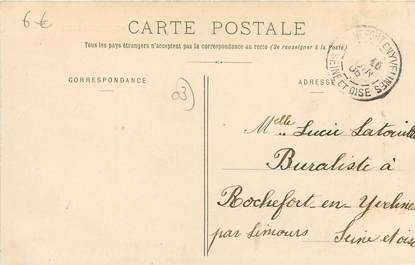 6 €
CARTE POSTALE
Tous les pays étrangers n'acceptent pas la correspondance au recto (Se renseigner à la Poste)
CORRESPONDANCE
ADRESSE
03
SEINE ET OISE
Melle Lucie
Buraliste à
Rochefort-en-Yveline
par Limours Seine et oise